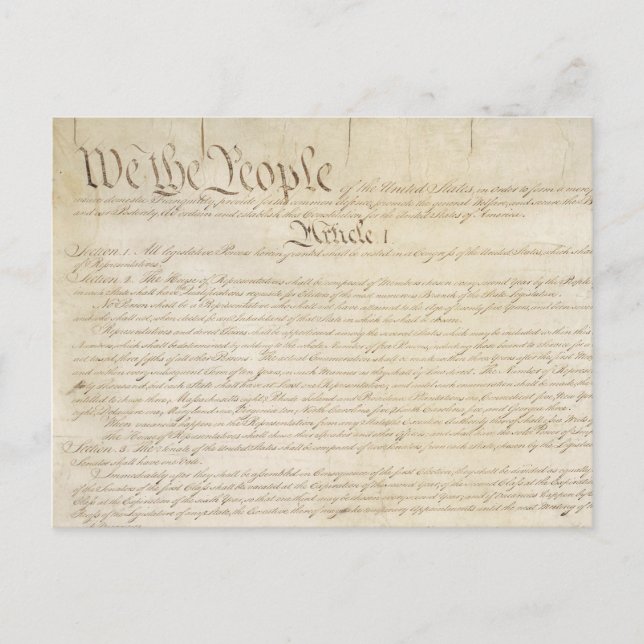 We the People of the United States, in Order to form a more
insure domestic Tranquility, provide for the common defence, promote the general Welfare, and secure the B
and our Posterity, do ordain and establish this Constitution for the United States of America.
Article. I.
Section. 1. All legislative Powers herein granted shall be vested in a Congress of the United States, which shall
of Representatives.
Section. 2. The House of Representatives shall be composed of Members chosen every second Year by the People
in each State shall have the Qualifications requisite for Electors of the most numerous Branch of the State Legislature.
No Person shall be a Representative who shall not have attained to the Age of twenty five Years, and been seven
and who shall not, when elected, be an Inhabitant of that State in which he shall be chosen.
Representatives and direct Taxes shall be apportioned among the several States which may be included within this
Numbers, which shall be determined by adding to the whole Number of free Persons, including those bound to Service for a
not taxed, three fifths of all other Persons. The actual Enumeration shall be made within three Years after the first Meet
and within every subsequent Term of ten Years, in such Manner as they shall by Law direct. The Number of Represen
thirty Thousand, but each State shall have at Least one Representative; and until such enumeration shall be made, the
entitled to chuse three, Massachusetts eight, Rhode Island and Providence Plantations one, Connecticut five, New York
eight, Delaware one, Maryland six, Virginia ten, North Carolina five, South Carolina five, and Georgia three.
When vacancies happen in the Representation from any State, the Executive Authority thereof shall issue Writs
The House of Representatives shall chuse their Speaker and other Officers; and shall have the sole Power of
Section. 3. The Senate of the United States shall be composed of two Senators from each State, chosen by the Legislat
Senator shall have one Vote.
Immediately after they shall be assembled in Consequence of the first Election, they shall be divided as equally
of the Senators of the first Class shall be vacated at the Expiration of the second Year, of the second Class at the Expiration
Class at the Expiration of the sixth Year, so that one third may be chosen every second Year; and if Vacancies happen by
Recess of the Legislature of any State, the Executive thereof may make temporary Appointments until the next Meeting of